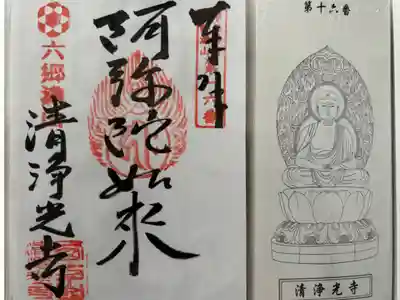 奉拝
阿弥陀如来
六郷満
清浄光寺
第十六番
清浄光寺